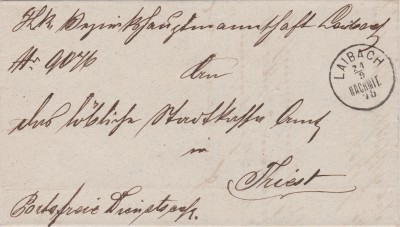 K.k. Bezirkshauptmannschaft Laibach
Nr. 9076
LAIBACH
24
9
NACHMIT.
75
An
das löbliche Stadtkasse Amt
in
Triest
Portofreie Dienstsache.